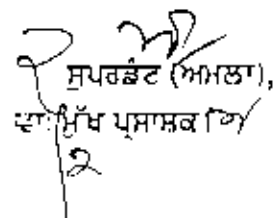 ਸੁਪਰਡੰਟ (ਅਮਲਾ),
ਵਾ: ਮੁੱਖ ਪ੍ਰਸਾਸ਼ਕ